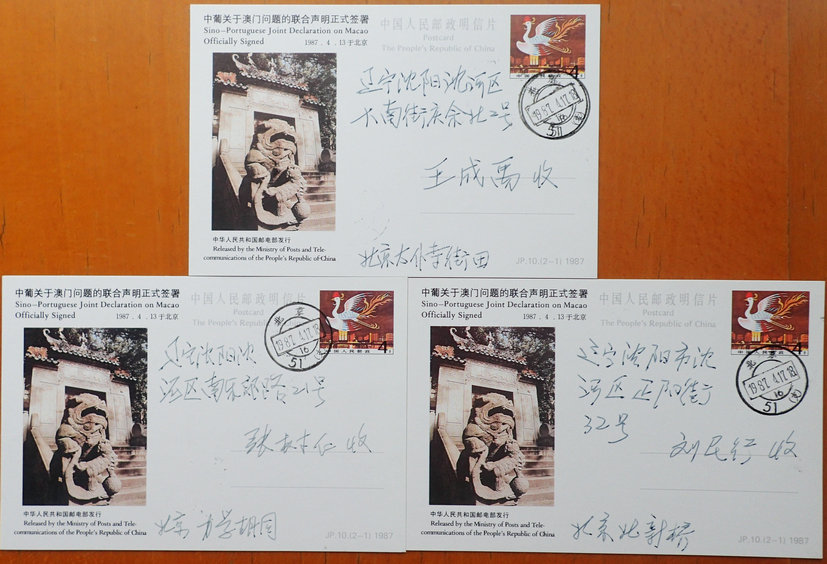 中葡关于澳门问题的联合声明正式签署
Sino-Portuguese Joint Declaration on Macao
Officially Signed 1987.4.13于北京
中国人民邮政明信片
Postcard
The People's Republic of China
中国人民邮政
4
北京
1987.4.17.18
16
51
辽宁沈阳沈河区
大南街庆余北2号
王成禹 收
北京
街田
中华人民共和国邮电部发行
Released by the Ministry of Posts and Tele-
communications of the People's Republic of China
JP.10.(2-1) 1987
中葡关于澳门问题的联合声明正式签署
Sino-Portuguese Joint Declaration on Macao
Officially Signed 1987.4.13于北京
中国人民邮政明信片
Postcard
The People's Republic of China
中国人民邮政
4
北京
1987.4.17.18
16
51
辽宁沈阳沈
河区南 路21号
张 仁 收
北京 胡同
中华人民共和国邮电部发行
Released by the Ministry of Posts and Tele-
communications of the People's Republic of China
JP.10.(2-1) 1987
中葡关于澳门问题的联合声明正式签署
Sino-Portuguese Joint Declaration on Macao
Officially Signed 1987.4.13于北京
中国人民邮政明信片
Postcard
The People's Republic of China
中国人民邮政
4
北京
1987.4.17.18
16
51
辽宁沈阳市沈
河区正阳街
32号
刘民行 收
北京北新桥
中华人民共和国邮电部发行
Released by the Ministry of Posts and Tele-
communications of the People's Republic of China
JP.10.(2-1) 1987